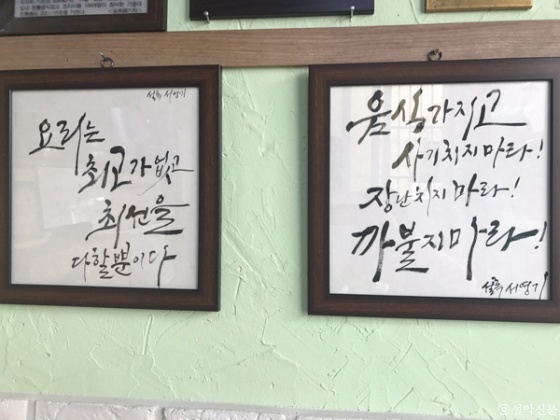 요리는
최고가 없고
최선을
다할뿐이다
음식가지고
사기치지마라!
장난치지마라!
까불지마라!
서영기